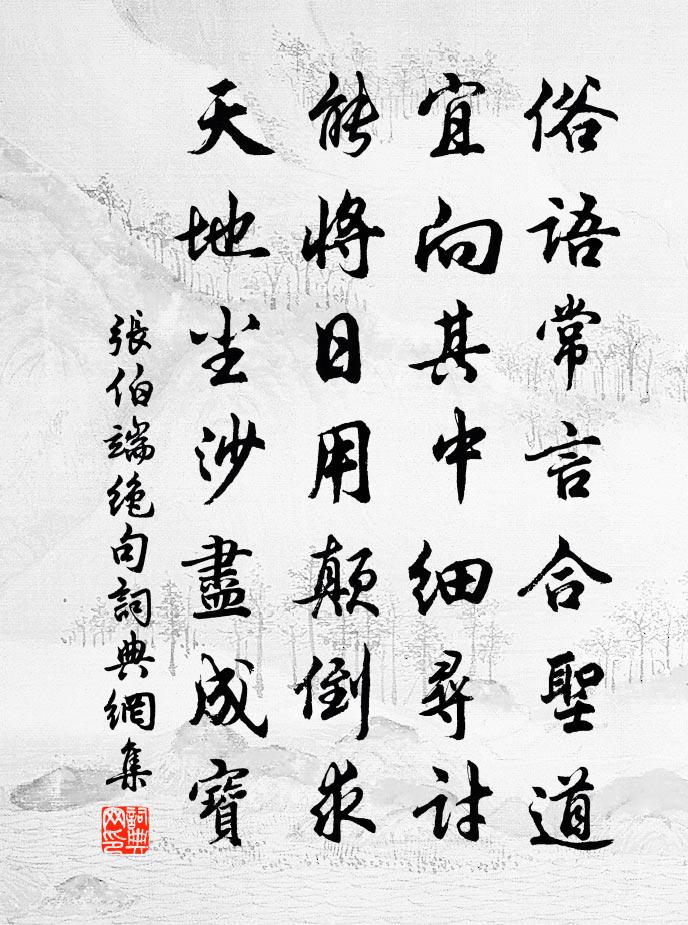 俗語常言合聖道
宜向其中細尋討
能將日用顛倒求
天地尘沙盡成寶
張伯端绝句詞典網集
詞典网印